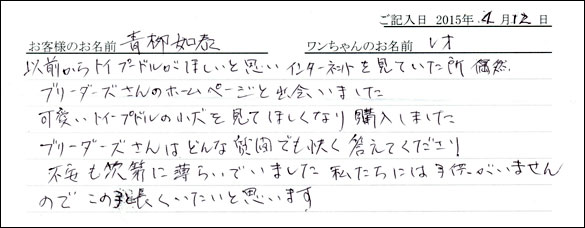 ご記入日 2015年 4 月 12 日
お客様のお名前 青柳如泰 ワンちゃんのお名前 レオ
以前からトイプードルがほしいと思い インターネットを見ていた所 偶然
ブリーダーズさんのホームページと出会いました
可愛いトイープドルの小犬を見てほしくなり購入しました
ブリーダーズさんはどんな質問でも快く答えてくださり
不安も次第に薄らいでいました 私たちには子供がいません
のでこの子と長くいたいと思います